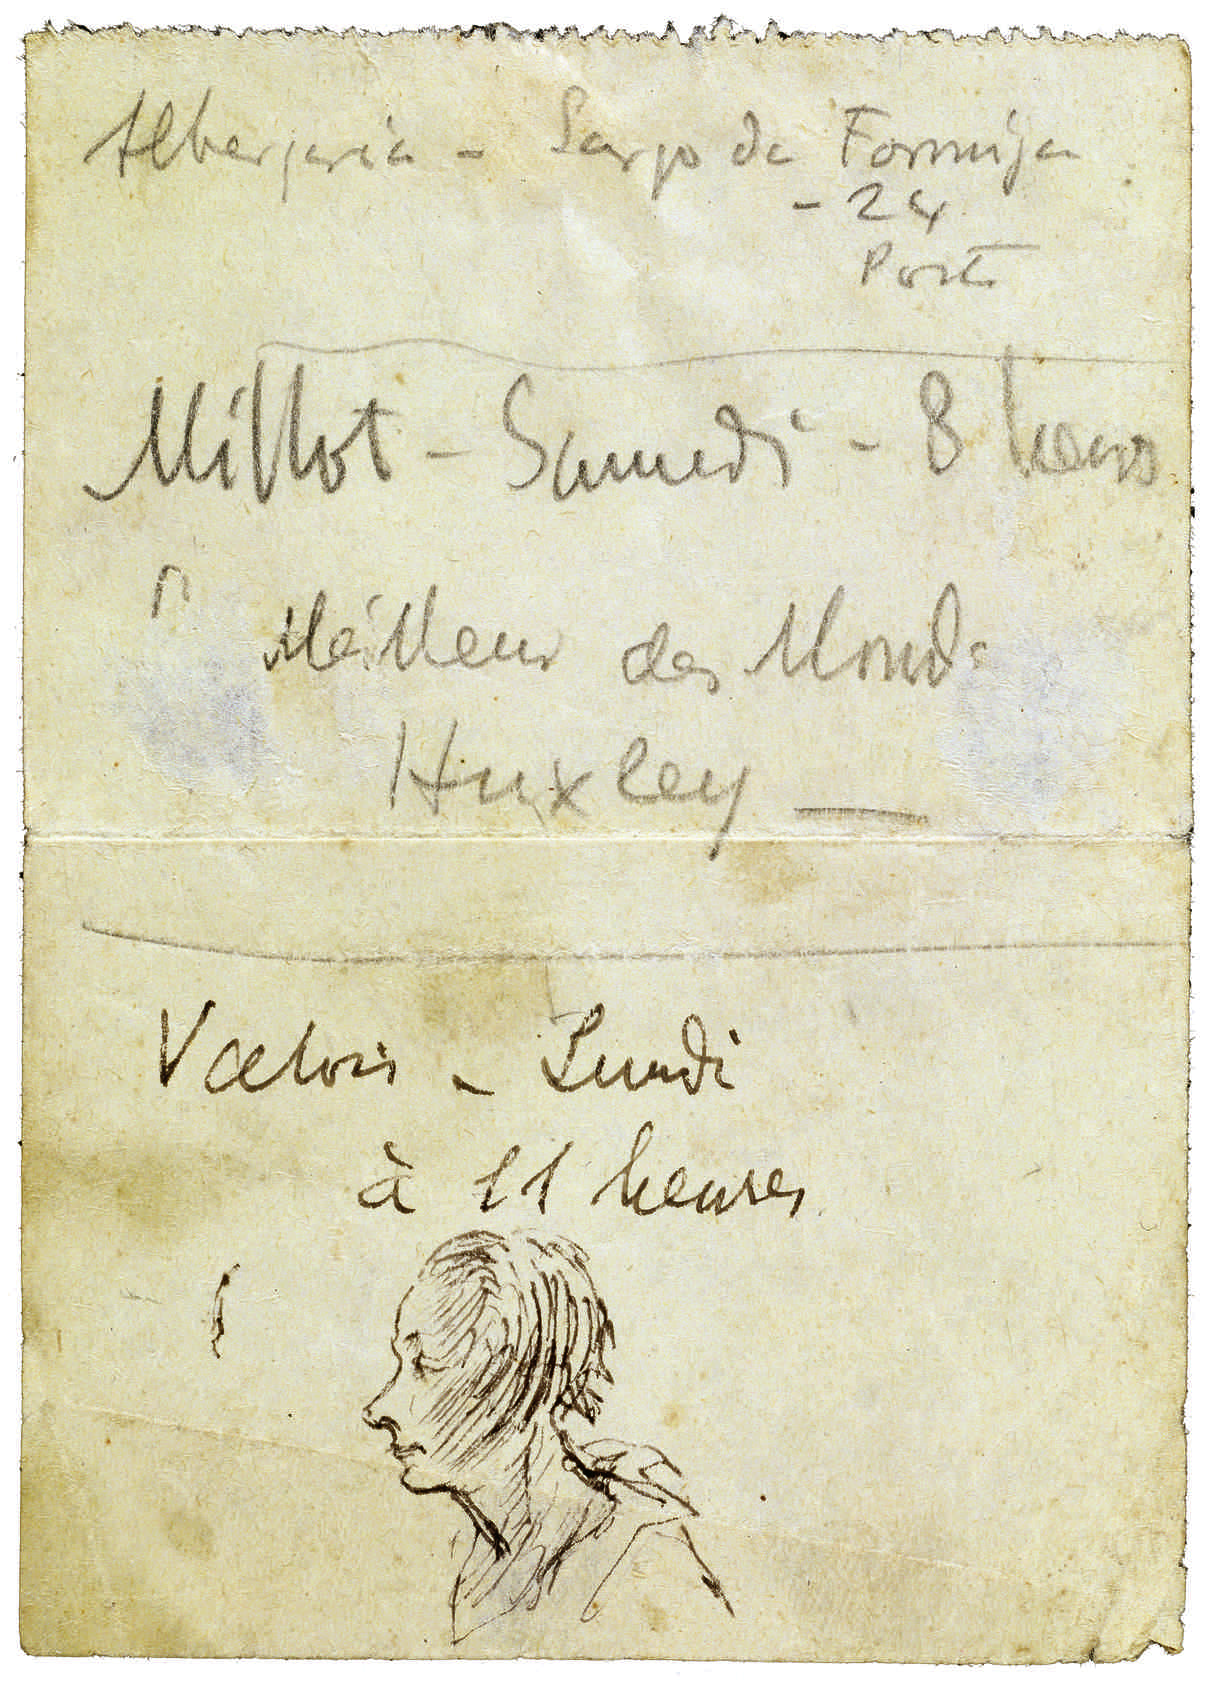 Albergaria - Largo da Formiga
- 24
Porto
Millot - Samedi - 8 heures
Meilleur des Mondes
Huxley —
Valois - Lundi
à 11 heures